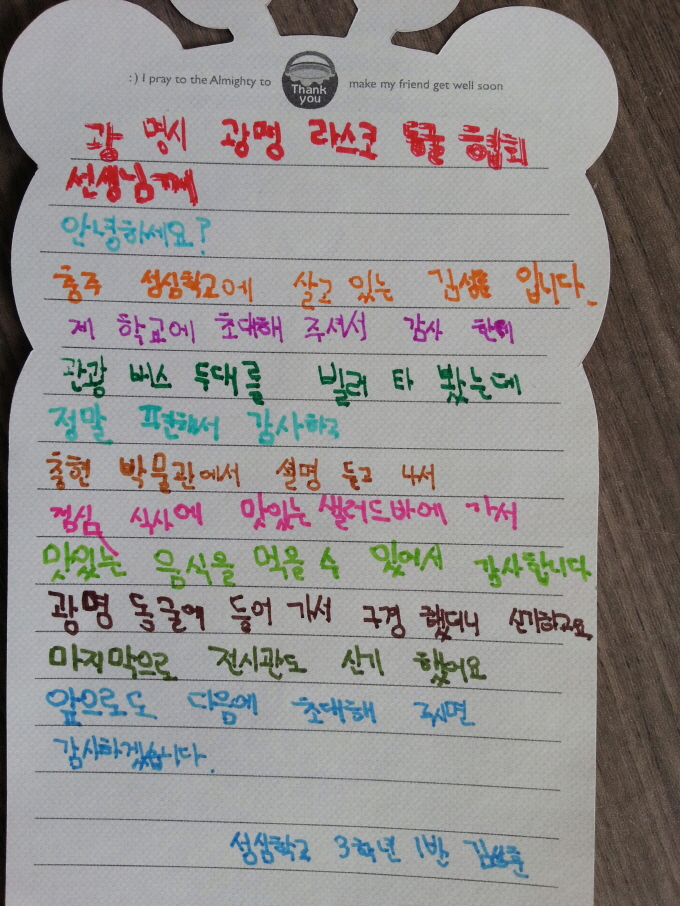 :) I pray to the Almighty to Thank you make my friend get well soon
광 명시 광명 라스코 동굴 협회
선생님께
안녕하세요?
충주 성심학교에 살고 있는 입니다.
제 학교에 초대해 주셔서 감사
관광 버스 두대를 빌려 타 봤는데
정말 편해서 감사하고
충현 박물관에서 설명 듣고 나서
점심 식사에 맛있는 샐러드바에 가서
맛있는 음식을 먹을 수 있어서 감사합니다
광명 동굴에 들어 가서 구경 했더니 신기하고요
마지막으로 전시관도 신기 했어요
앞으로도 다음에 초대해 주시면
감사하겠습니다.
성심학교 3학년 1반